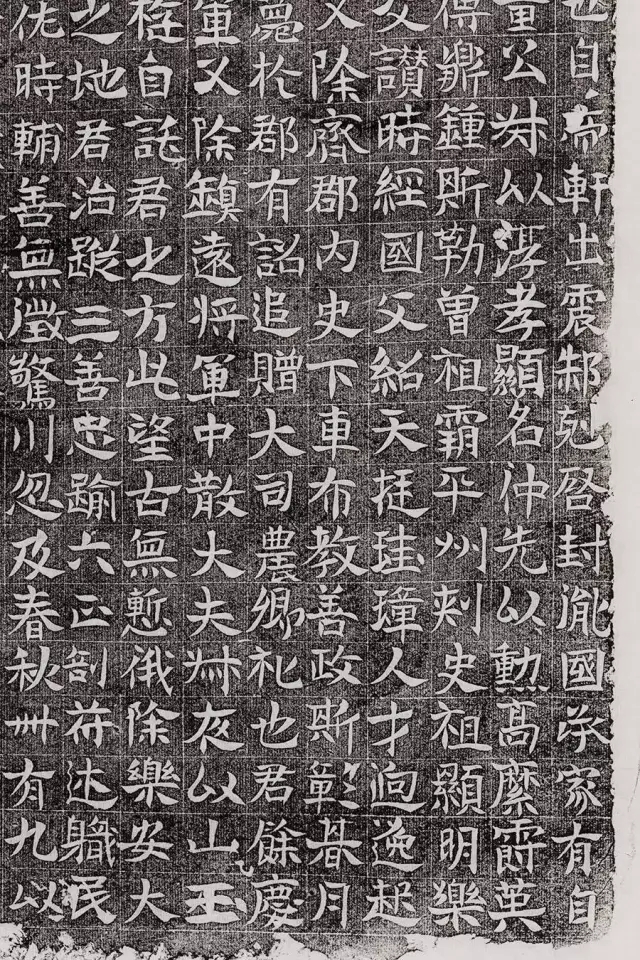 也自帝軒出震剋啓封胤國承家有自
公叔以淳孝顯名仲先以勳高麋爵英
傳鼎鍾斯勒曾祖霸平州刾史祖顯明樂
文讃時經國父紹天挺珪璋人才逈逸起
又除齊郡内史下車布教善政斯彰朞月
薨於郡有詔追贈大司農卿礼也君餘慶
軍又除鎮遠將軍中散大夫叔夜以山王
自託君之方此望古無慙俄除樂安大
之地君治蹤三善忠踰六正剖苻述軄民
佐時輔善無徵驚川忽及春秋卌有九以